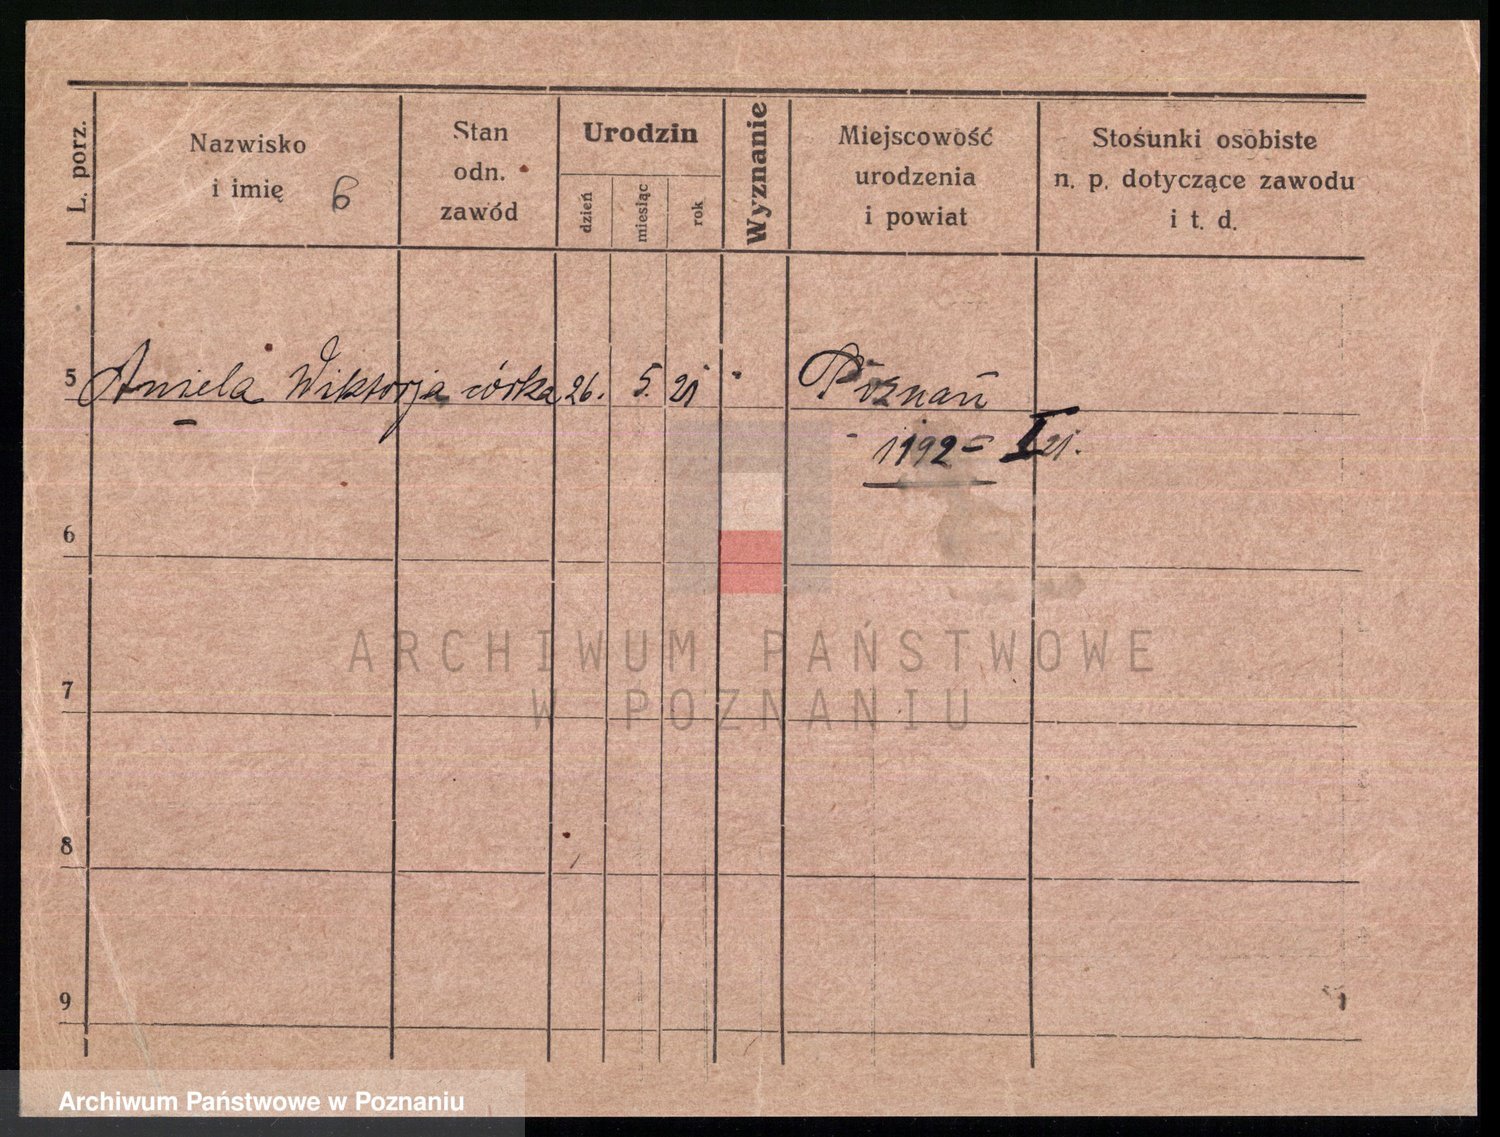 L. porz.
Nazwisko
i imię
6
Stan
odn.
zawód
Urodzin
dzień
miesiąc
rok
Wyznanie
Miejscowość
urodzenia
i powiat
Stosunki osobiste
n. p. dotyczące zawodu
i t. d.
5 Aniela Wiktorja córka 26. 5. 21 " Poznań
1192= I 21.
6
7
8
9
ARCHIWUM PAŃSTWOWE
W POZNANIU
Archiwum Państwowe w Poznaniu